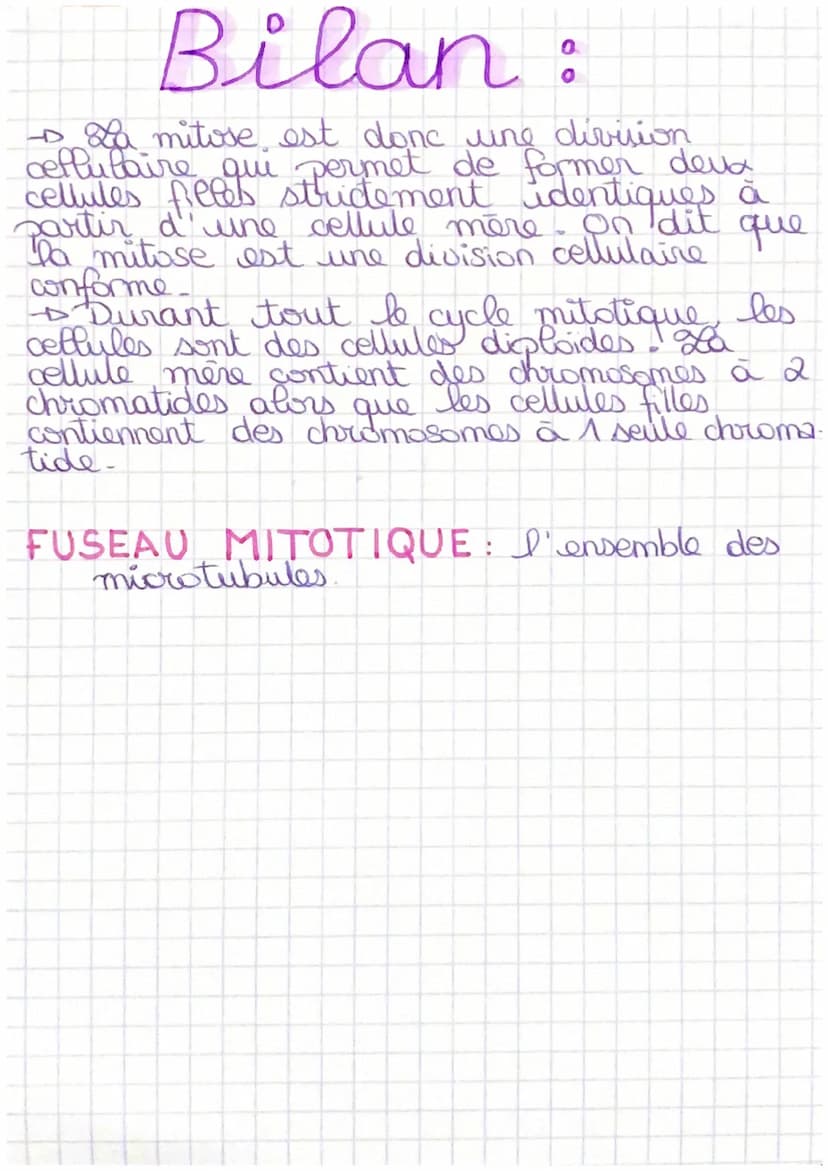 Bilan :
→ La mitose est donc une division
cellulaire qui permet de former deux
cellules filles strictement identiques à
partir d'une cellule mère. On dit que
la mitose est une division cellulaire
conforme.
→ Durant tout le cycle mitotique, les
cellules sont des cellules diploïdes. La
cellule mère contient des chromosomes à 2
chromatides alors que les cellules filles
contiennent des chromosomes à 1 seule chroma-
tide.
FUSEAU MITOTIQUE : l'ensemble des
microtubules.